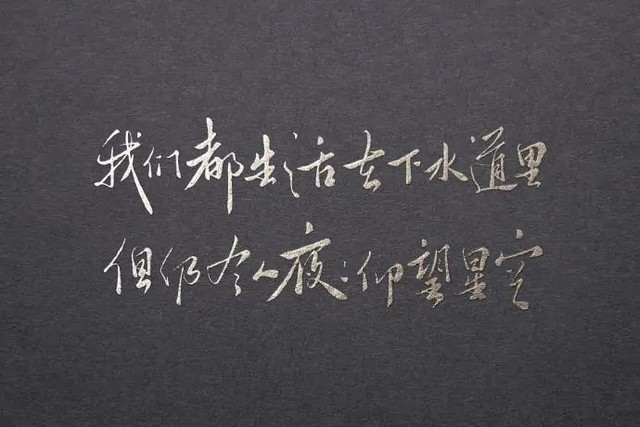 我们都生活在下水道里
但仍有人夜:仰望星空